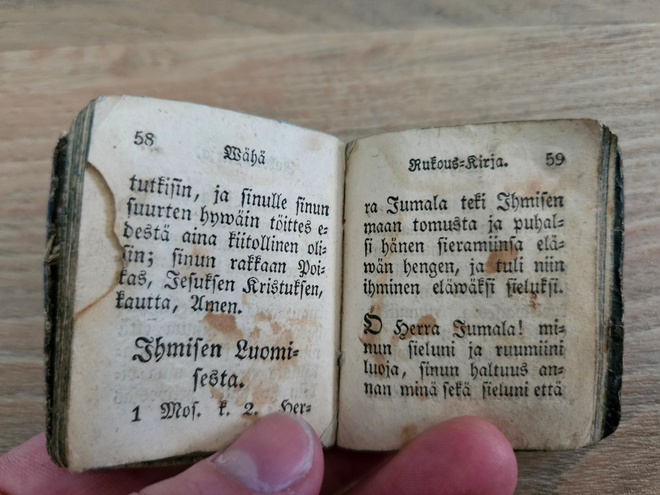 58
Wähä
tutkisin, ja sinulle sinun
suurten hywäin töittes e-
destä aina kiitollinen oli-
sin; sinun rakkaan Poi-
kas, Jesuksen Kristuksen,
kautta, Amen.
Ihmisen Luomi-
sesta.
1 Mos. k. 2. Her-
Rukous-Kirja. 59
ra Jumala teki Ihmisen
maan tomusta ja puhal-
si hänen sieramiinsa elä-
wän hengen, ja tuli niin
ihminen eläwäksi sieluksi.
O Herra Jumala! mi-
nun sieluni ja ruumiini
luoja, sinun haltuus an-
nan minä sekä sieluni että